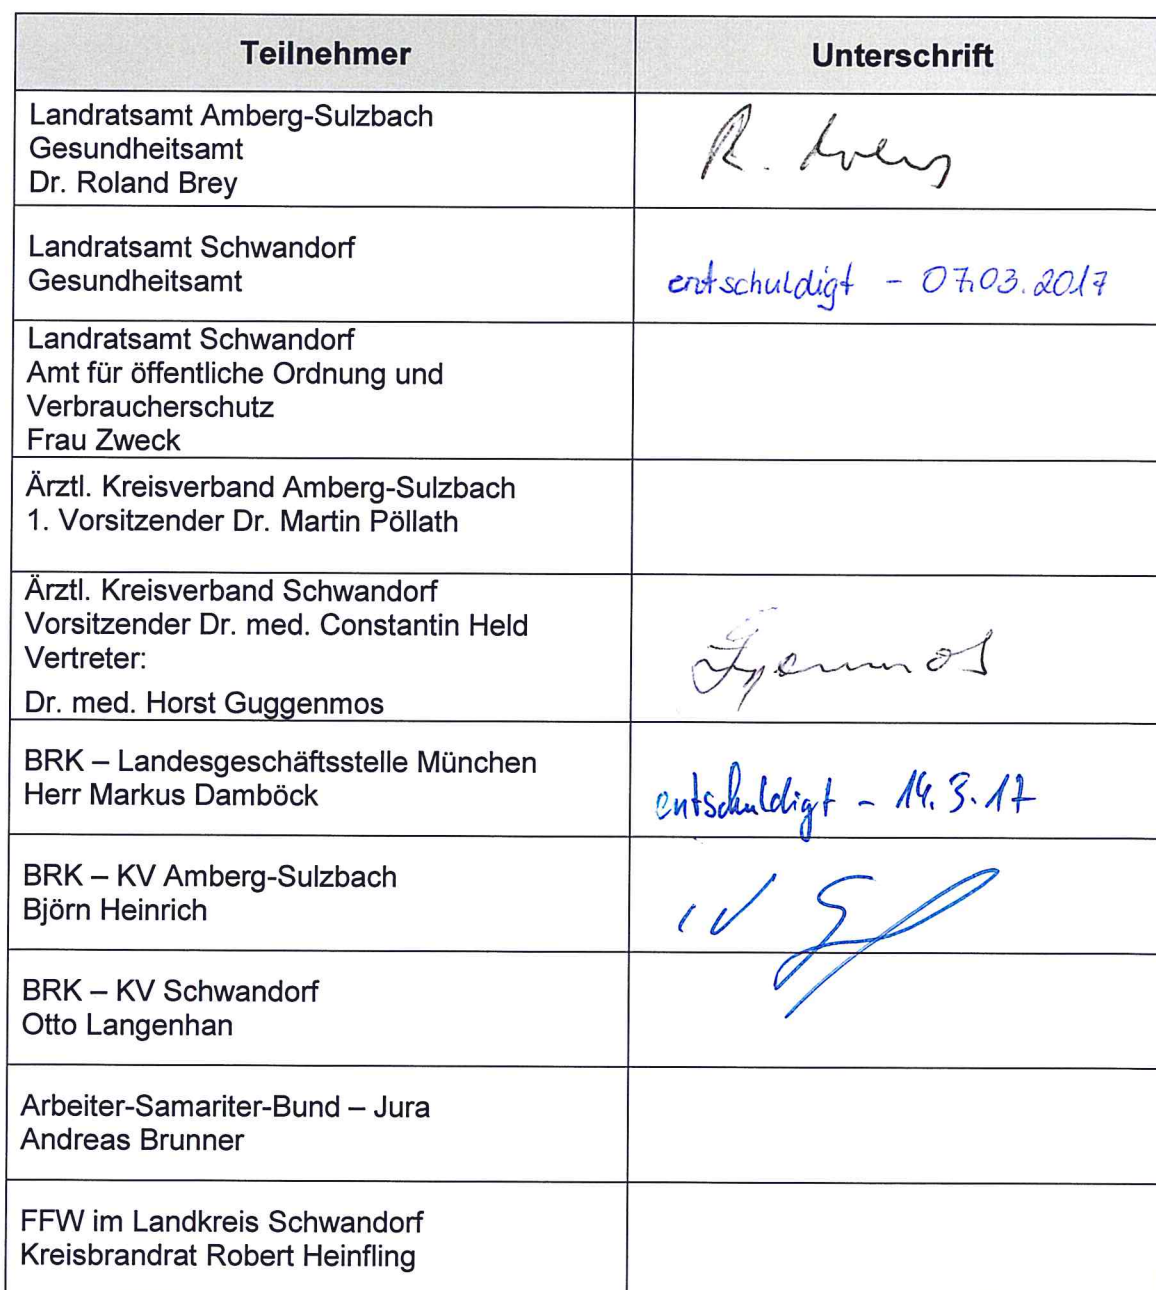 Teilnehmer
Unterschrift
Landratsamt Amberg-Sulzbach
Gesundheitsamt
Dr. Roland Brey
R.
Landratsamt Schwandorf
Gesundheitsamt
entschuldigt - 07.03.2017
Landratsamt Schwandorf
Amt für öffentliche Ordnung und
Verbraucherschutz
Frau Zweck
Ärztl. Kreisverband Amberg-Sulzbach
1. Vorsitzender Dr. Martin Pöllath
Ärztl. Kreisverband Schwandorf
Vorsitzender Dr. med. Constantin Held
Vertreter:
Dr. med. Horst Guggenmos
BRK – Landesgeschäftsstelle München
Herr Markus Damböck
entschuldigt - 14.3.17
BRK – KV Amberg-Sulzbach
Björn Heinrich
BRK – KV Schwandorf
Otto Langenhan
Arbeiter-Samariter-Bund – Jura
Andreas Brunner
FFW im Landkreis Schwandorf
Kreisbrandrat Robert Heinfling